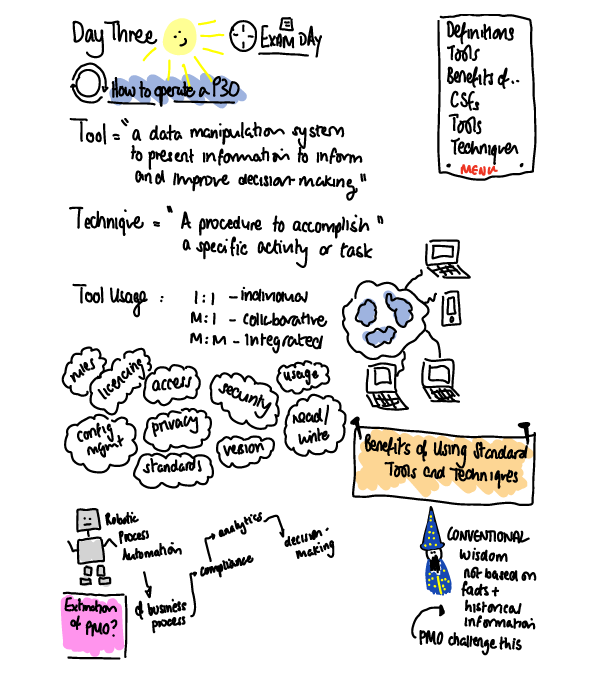 Day Three
EXAM DAY
How to operate a P3O
Definitions
Tools
Benefits of..
CSFs
Tools
Techniques
MENU
Tool = "a data manipulation system
to present information to inform
and improve decision-making."
Technique = "A procedure to accomplish"
a specific activity or task
Tool Usage :
1:1 - individual
M:1 - collaborative
M:M - integrated
rules
licencing
access
security
usage
config
mgmt
privacy
version
read/
write
standards
Benefits of Using Standard
Tools and Techniques
Robotic
Process
Automation
of business
process
compliance
analytics
decision-
making
Extination
of PMO?
CONVENTIONAL
wisdom
not based on
facts +
historical
information
PMO challenge this